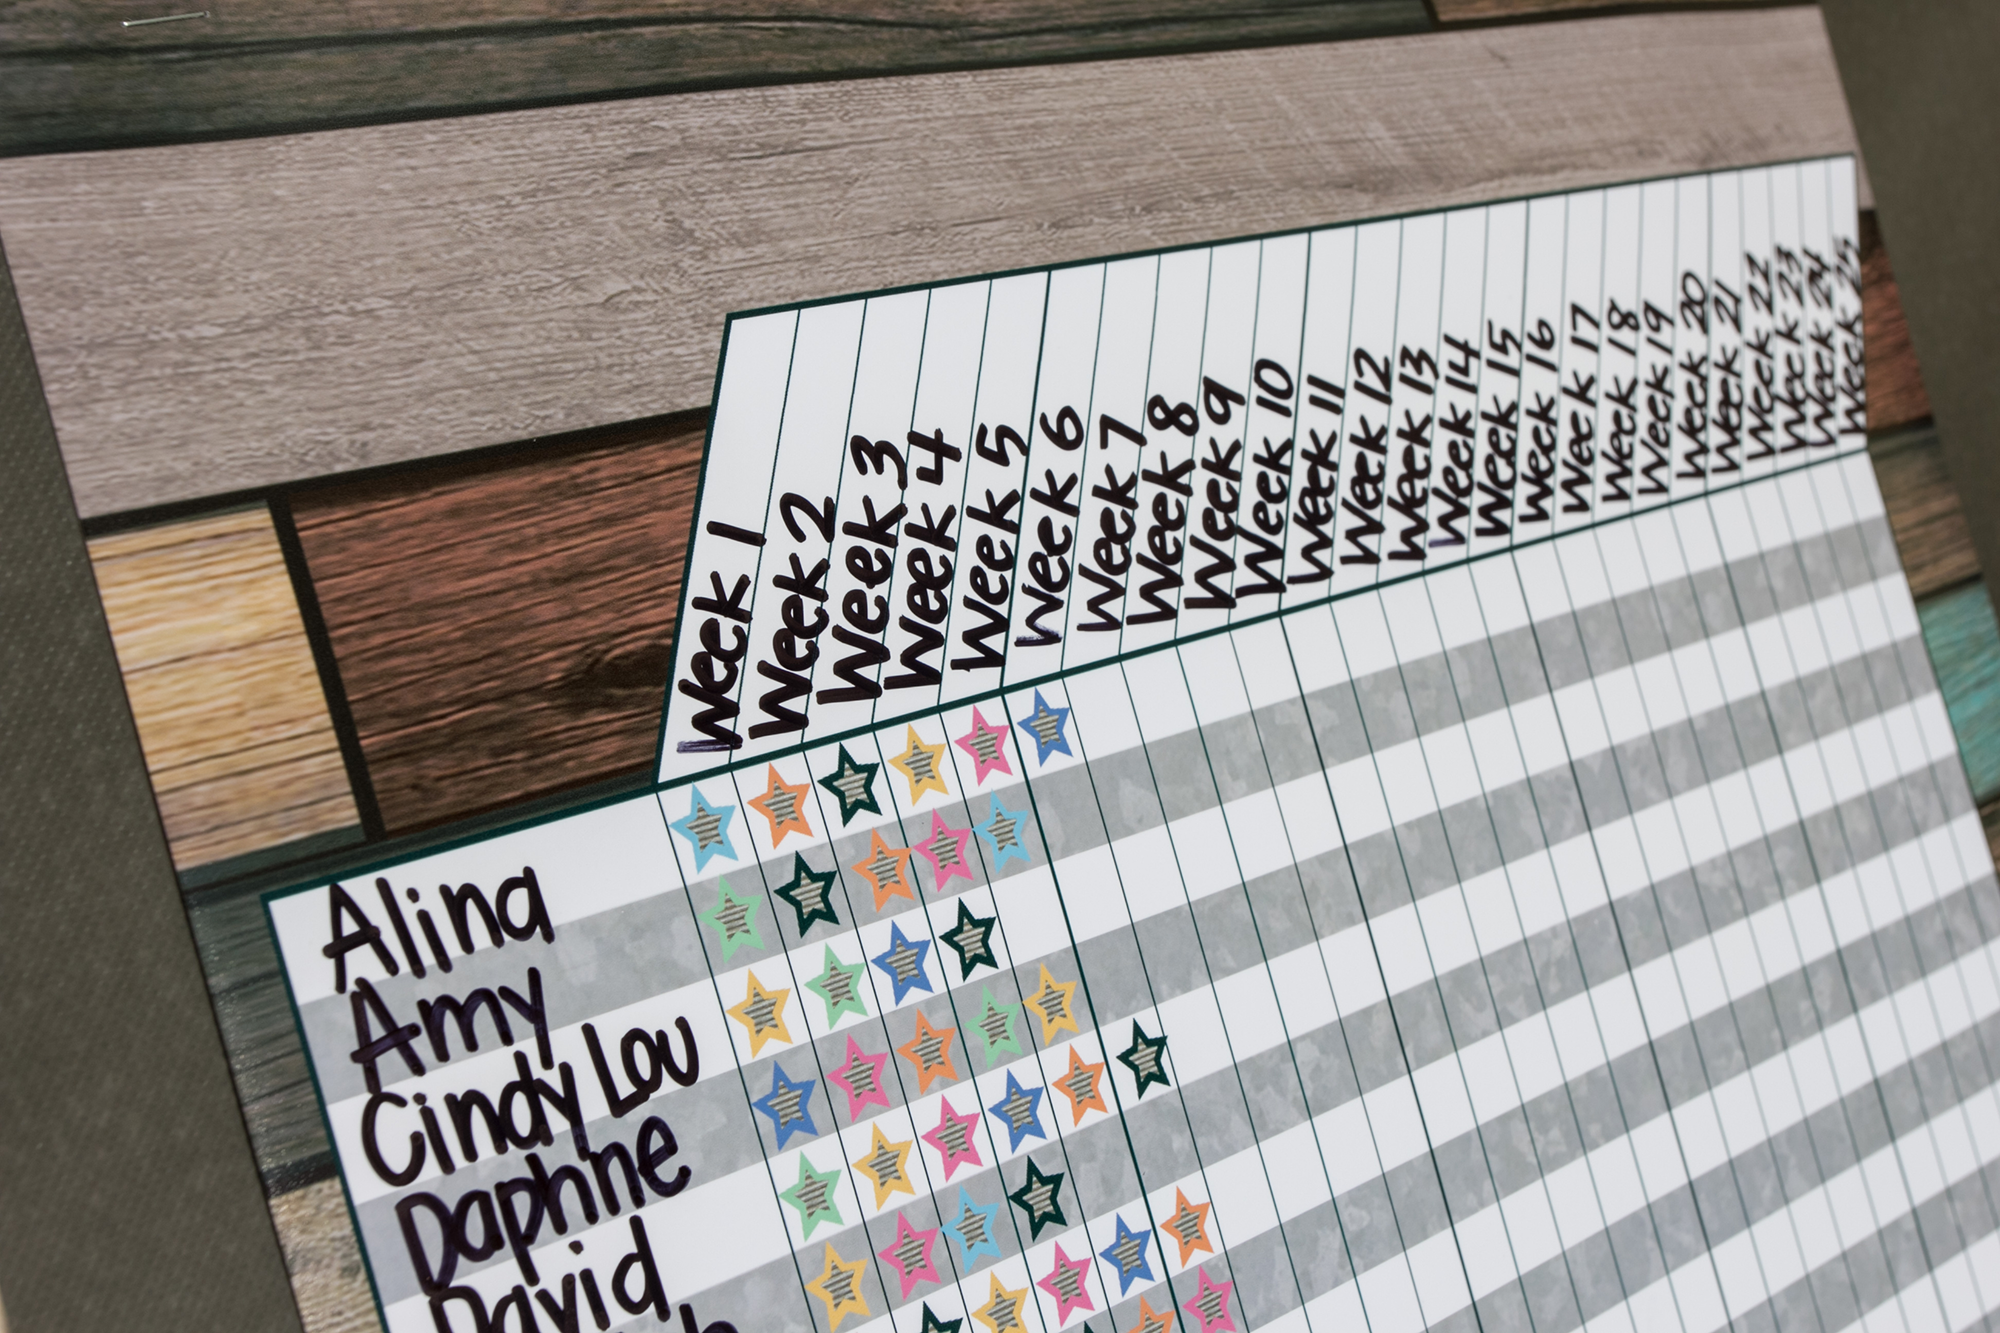 Week 1
Week 2
Week 3
Week 4
Week 5
Week 6
Week 7
Week 8
Week 9
Week 10
Week 11
Week 12
Week 13
Week 14
Week 15
Week 16
Week 17
Week 18
Week 19
Week 20
Week 21
Week 22
Week 23
Week 24
Week 25
Alina
Amy
Cindy Lou
Daphne
David